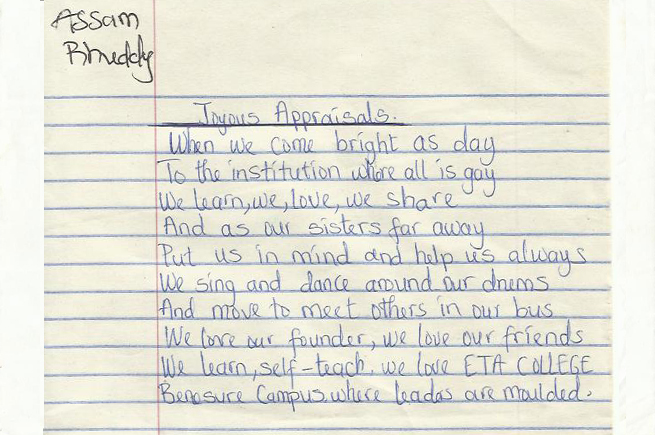 Assam
Bhuddy
Joyous Appraisals.
When we come bright as day
To the institution where all is gay
We learn, we, love, we share
And as our sisters far away
Put us in mind and help us always
We sing and dance around our drums
And move to meet others in our bus
We love our founder, we love our friends
We learn, self-teach, we love ETA COLLEGE
Benasure Campus. where leadas are moulded.